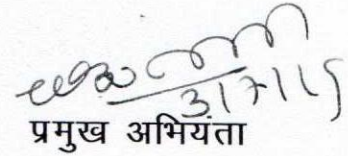 3/7/15
प्रमुख अभियंता